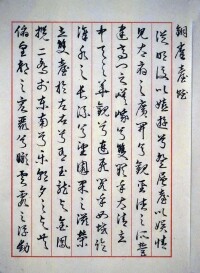 銅雀臺賦
從明后以嬉遊兮登層臺以娛情
見太府之廣開兮觀聖德之所營
建高門之嵯峨兮浮雙闕乎太清立
中天之華觀兮連飛閣乎西城臨
漳水之長流兮望園果之滋榮
立雙臺於左右兮有玉龍與金鳳
攬二喬於東南兮樂朝夕之與共
俯皇都之宏麗兮瞰雲霞之浮動